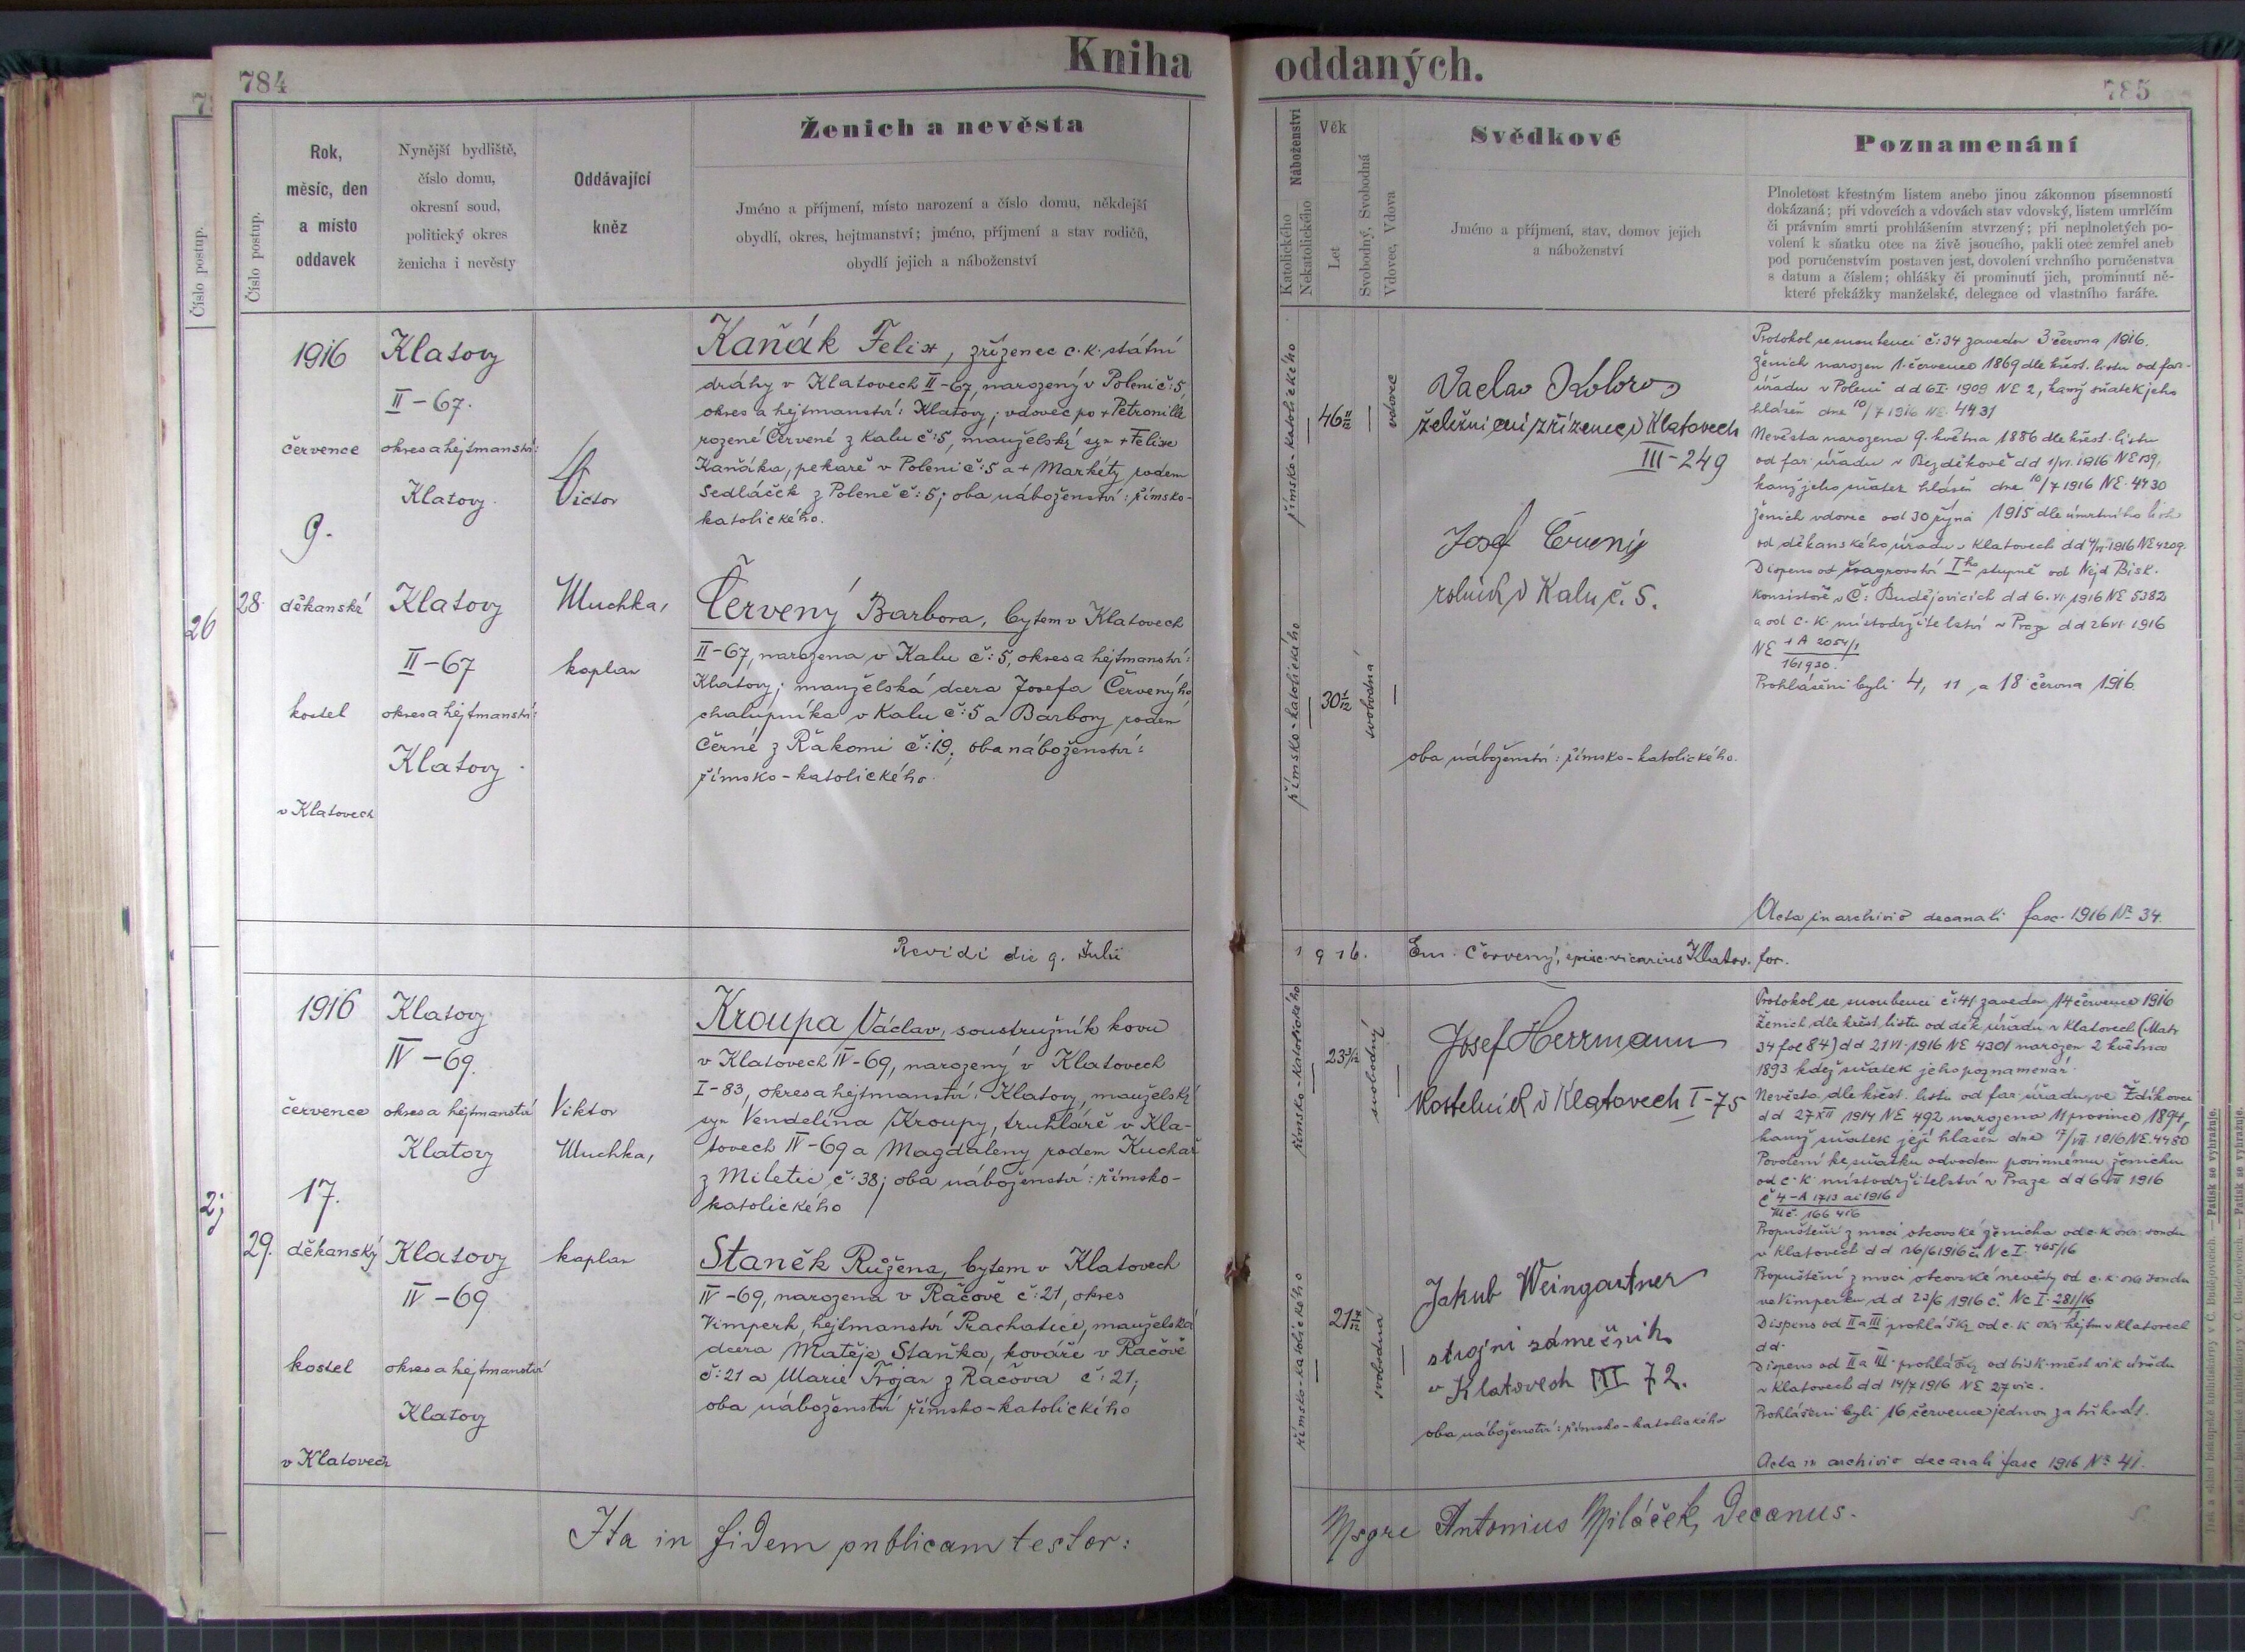 Kniha oddaných.
784
785
Číslo postup.
Číslo postup.
Rok,
měsíc, den
a místo
oddavek
Nynější bydliště,
číslo domu,
okresní soud,
politický okres
ženicha i nevěsty
Oddávající
kněz
Ženich a nevěsta
Jméno a příjmení, místo narození a číslo domu, někdejší
obydlí, okres, hejtmanství; jméno, příjmení a stav rodičů,
obydlí jejich a náboženství
Náboženství
Katolického
Nekatolického
Věk
Let
Svobodný, Svobodná
Vdovec, Vdova
Svědkové
Jméno a příjmení, stav, domov jejich
a náboženství
Poznamenání
Plnoletost křestným listem anebo jinou zákonnou písemností
dokázaná; při vdovcích a vdovách stav vdovský, listem umrlčím
či právním smrti prohlášením stvrzený; při neplnoletých po-
volení k sňatku otce na živě jsoucího, pakli otec zemřel aneb
pod poručenstvím postaven jest, dovolení vrchního poručenstva
s datum a číslem; ohlášky či prominutí jich, prominutí ně-
které překážky manželské, delegace od vlastního faráře.
26
28.
1916
července
9.
děkanský
kostel
v Klatovech
Klatovy
II-67.
okres a hejtmanství:
Klatovy.
Klatovy
II-67
okres a hejtmanství:
Klatovy.
Victor
Muchka,
kaplan
Kaňák Felix, zřízenec c. k. státní
dráhy v Klatovech II-67, narozený v Poleni č: 5,
okres a hejtmanství: Klatovy; vdovec po + Petronille
rozené Červené z Kalu č: 5, manželský syn + Felixe
Kaňáka, pekaře v Poleni č: 5 a + Markéty rodem
Sedláček z Poleně č: 5; oba náboženství: římsko-
katolického.
Červený Barbora, bytem v Klatovech
II-67, narozena v Kalu č: 5, okres a hejtmanství:
Klatovy; manželská dcera Josefa Červeného,
chalupníka v Kalu č: 5 a Barbory rodem
Černé z Řakomi č: 19; oba náboženství:
římsko-katolického.
římsko-katolického
46 11/12
vdovec
římsko-katolického
30
svobodná
Vaclav
železniční zřízenec v Klatovech
III-249
Josef Červený
rolník v Kalu č. 5.
oba náboženství: římsko-katolického.
Protokol se snoubenci č: 34 zaveden 3 června 1916.
Ženich narozen 1. července 1869 dle křest. listu od far.
úřadu v Poleni d d 6 I. 1909 NE 2, kamž sňatek jeho
hlášen dne 10/7 1916 NE. 4431
Nevěsta narozena 9. května 1886 dle křest. listu
od far. úřadu v Bezděkově d d 1/VI. 1916 NE 139,
kamž jeho sňatek hlášen dne 10/7 1916 NE. 4430
Ženich vdovec od 30 října 1915 dle úmrtního listu
od děkanského úřadu v Klatovech d d 1916 NE 4209.
Dispens od švagrovství I ho stupně od Nejd. Bisk.
konsistoře v Č: Budějovicích d d 6. VI. 1916 NE 5382
a od c. k. místodržitelství v Praze d d 26 VI 1916
NE 1 A 2054/1
161930.
Prohlášeni byli 4, 11 a 18 června 1916.
Acta in archivio decanali fasc. 1916 No 34.
Revidi die 9. Julii 1916. Em. Červený, episc. vicarius Klatov. for.
27
29.
1916
července
17.
děkanský
kostel
v Klatovech
Klatovy
IV-69.
okres a hejtmanství
Klatovy
Klatovy
IV-69
okres a hejtmanství
Klatovy
Viktor
Muchka,
kaplan
Kroupa Václav, soustružník kovu
v Klatovech IV-69, narozený v Klatovech
I-83, okres a hejtmanství: Klatovy, manželský
syn Vendelína Kroupy, truhláře v Kla-
tovech IV-69 a Magdaleny rodem Kuchař
z Miletic č: 38; oba náboženství: římsko-
katolického
Staněk Růžena, bytem v Klatovech
IV-69, narozena v Račově č: 21, okres
Vimperk, hejtmanství Prachatice, manželská
dcera Matěje Staňka, kováře v Račově
č: 21 a Marie Trojan z Račova č: 21;
oba náboženství římsko-katolického
římsko-katolického
23
svobodný
římsko-katolického
21
svobodná
Josef Herrmann
kostelník v Klatovech I-75
Jakub Weingartner
strojní zámečník
v Klatovech III 72.
oba náboženství: římsko-katolického
Protokol se snoubenci č: 41 zaveden 14 července 1916
Ženich dle křest. listu od děk. úřadu v Klatovech (Matr.
34 fol 84) d d 21 VI. 1916 NE 4301 narozen 2 května
1893 kdež sňatek jeho poznamenán.
Nevěsta dle křest. listu od far. úřadu ve Ždíkovu
d d 27 XII 1914 NE 492 narozena 11 prosince 1894,
kamž sňatek její hlášen dne 17/VII. 1916 NE. 4480
Povolení ke sňatku odvodem povinnému ženichu
od c. k. místodržitelství v Praze d d 6 VII 1916
č 4-A 1713 ai 1916
Propuštění z moci otcovské ženicha od c. k. okr. soudu
v Klatovech d d 26/6 1916 č. Nc I. 465/16
Propuštění z moci otcovské nevěsty od c. k. okr. soudu
ve Vimperku d d 23/6 1916 č. Nc I. 281/16
Dispens od II a III prohlášky od c. k. okr. hejtm v Klatovech
d d.
Dispens od II a III. prohlášky od bisk. měst. vik. úřadu
v Klatovech d d 14/7 1916 NE 27 vic.
Prohlášeni byli 16 července jednou za třikrát.
Acta in archivio decanali fasc 1916 No 41.
Ita in fidem publicam testor: Msgre Antonius Špiláček, Decanus.